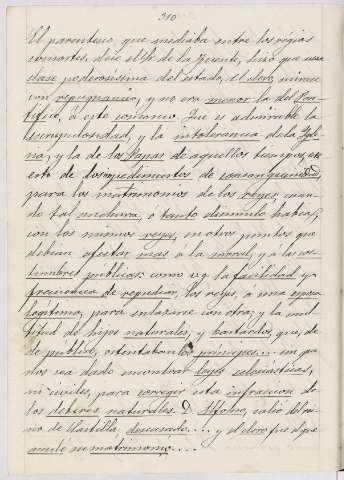 310
El parentesco, que mediaba entre los regios
consortes, dice el Sr. de la Fuente, hizo que una
clase poderosisima del estado, el clero, mirase
con repugnancia, y no era menor la del Pon-
tifice, á este consorcio. Que es admirable la
escrupulosidad, y la intolerancia de la Igle-
sia, y la de los Papas de aquellos tiempos, en
esto de los impedimentos de consanguinidad
para los matrimonios de los reyes, cuan-
do tal anchura, ó tanto disimulo habia,
con los mismos reyes, en otros puntos que
debian afectar mas á la moral, y á las cos-
tumbres públicas: como v.g. la facilidad y
frecuencia de repudiar, los reyes, á una esposa
legitima, para enlazarse con otra; y la mul-
titud de hijos naturales, y bastardos, que, de
de público, ostentaban los principes.... sin que
nos sea dado encontrar leyes eclesiasticas,
ni civiles, para corregir esta infraccion de
los deberes naturales. D. Alfonso, salió del rei-
no de Castilla descasado.... y el clero fue el que
anuló su matrimonio....